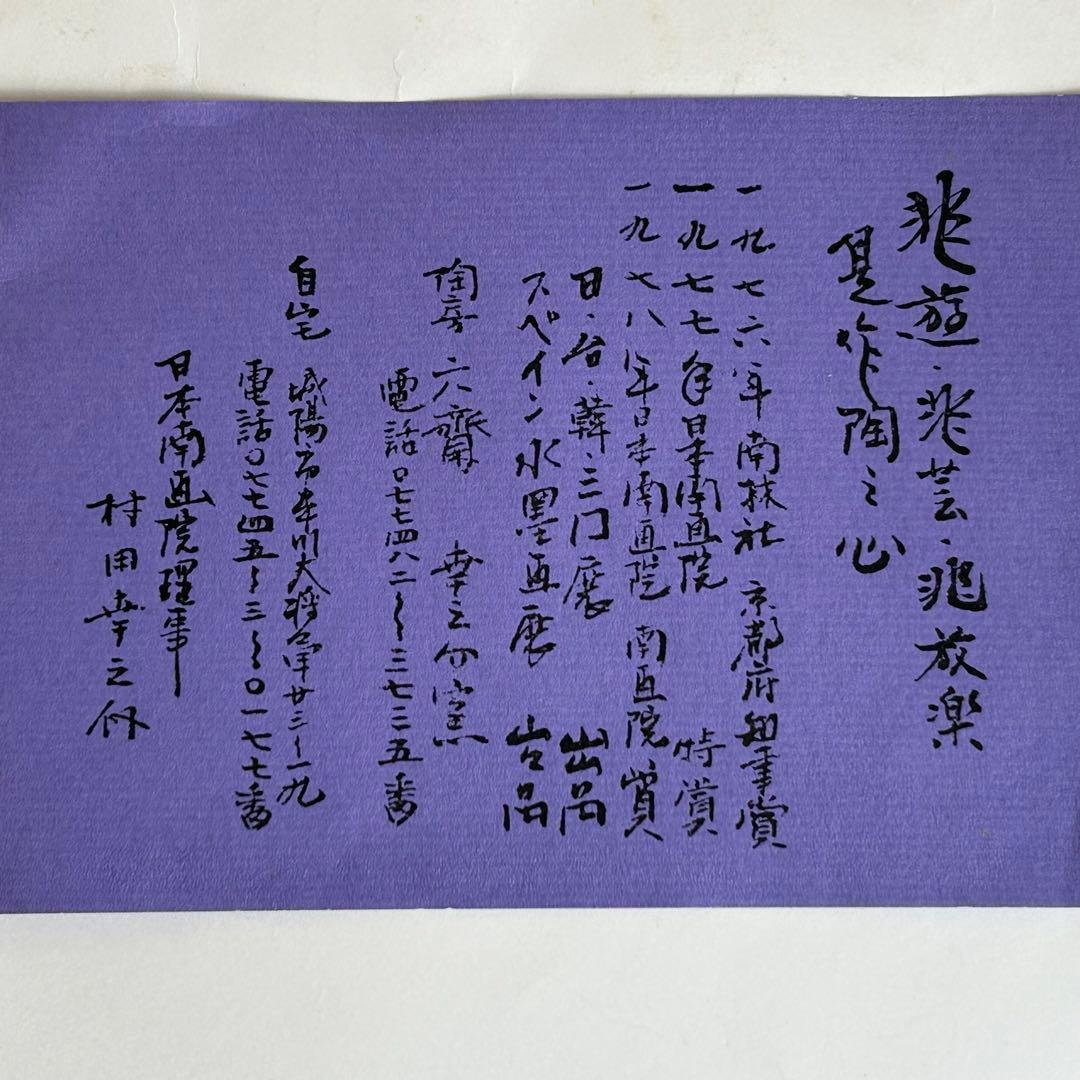 兆遊・兆芸・兆放楽
是作陶之心
一九七六年 南林社 京都府知事賞
一九七七年日本南画院 特賞
一九七八年日本南画院 南画院賞
日・台・韓・三门展 出品
スペイン水墨画展 出品
陶房 六齋 幸之介窯
電話〇七七四八二〜三七二五番
自宅 城陽市寺田大 廿三〜一九
電話〇七七四五〜三〜〇一七七番
日本南画院理事
村田幸之介